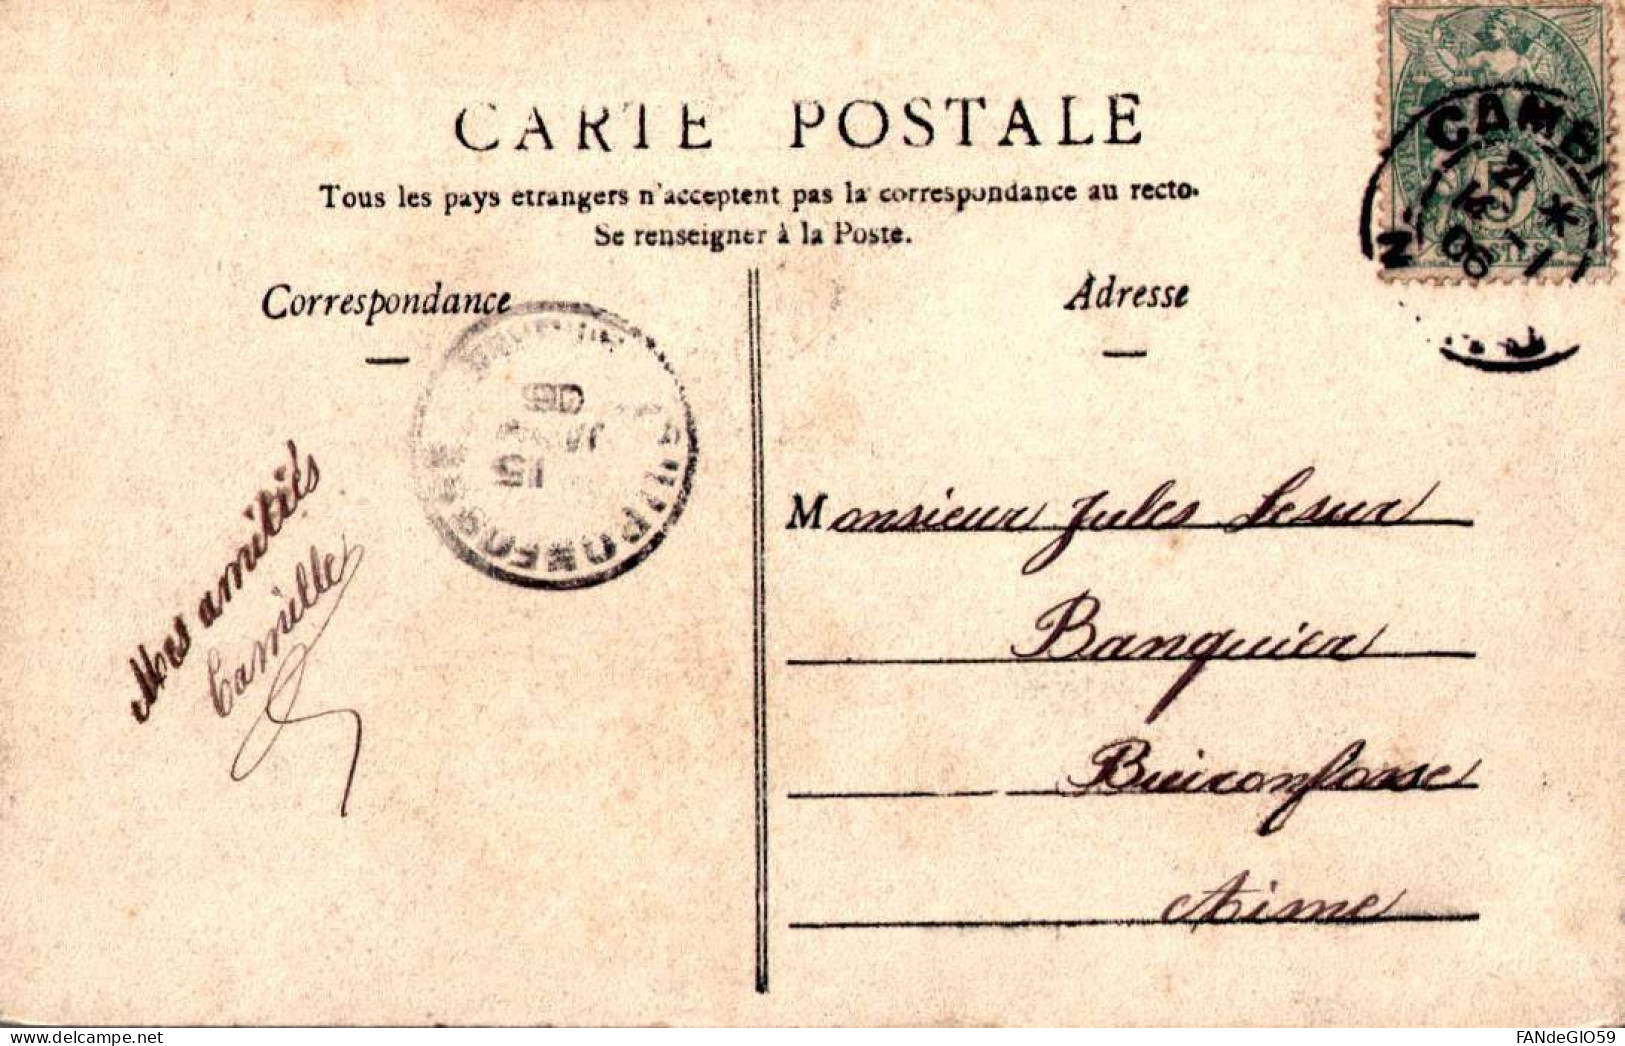 CARTE POSTALE
Tous les pays etrangers n'acceptent pas la correspondance au recto.
Se renseigner à la Poste.
Correspondance
Adresse
CAMBI
21
14
1
06
15
JA
06
Mes amitiés
Camille
Monsieur Jules Lesur
Banquier
Buironfosse
Aisne
POSTES
delcampe.net
FANdeGIO59